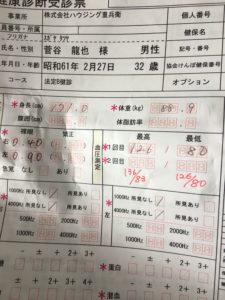 健康診断受診票
事業所 株式会社ハウジング重兵衛 個人番号
員番号・所属 健保名
フリガナ スガヤ タツヤ
氏名・性別 菅谷 龍也 様 男性 記号・番号
生年月日・年齢 昭和61年 2月27日 32 歳 協会けんぽ健康保険
コース 法定B健診 オプション
*身長(cm) 171.0 *体重(kg) 88.9
腹囲(cm) 体脂肪率
裸眼 矯正 最高 最低
右 0.40 血圧測定 1回目 126 80
左 0.90 2回目
色覚 なし あり 136/83 126/80
1000Hz 所見なし 所見あり 1000Hz 所見なし 所見あり
4000Hz 所見なし 所見あり 左 4000Hz 所見なし
500Hz 2000Hz 500Hz
1000Hz 4000Hz 1000Hz
- ± + 2+ 3+ 4+ - ± + 2+
*蛋白
- ± + 2+ 3+ - ± +
潜血